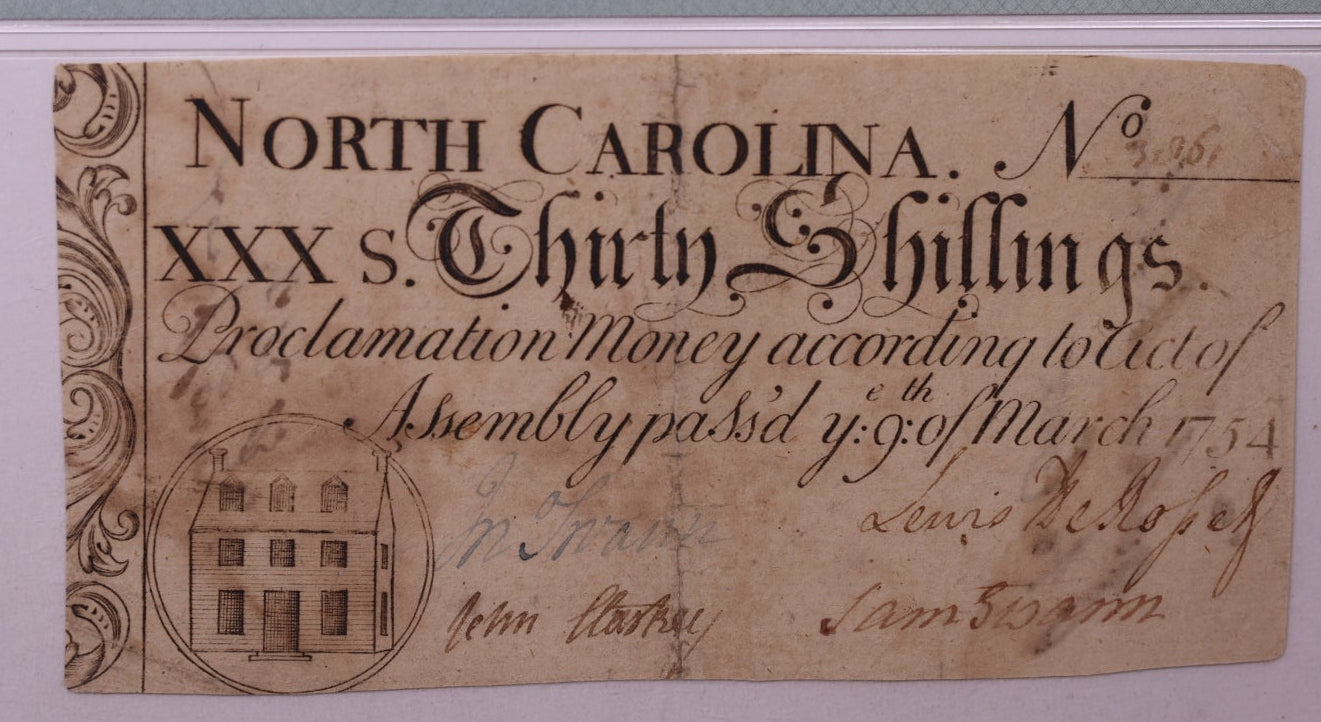 NORTH CAROLINA. Nº
XXX S. Thirty Shillings.
Proclamation Money according to Act of
Assembly pass'd yᵉ: 9ᵗʰ: of March 1754
Jnº Swann
Lewis DeRosset
John Starkey
Sam Swann